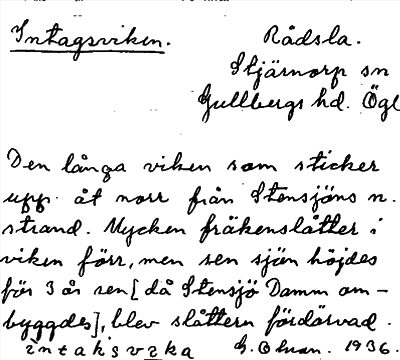 Intagsviken.
Rådsla.
Stjärnorp sn
Gullbergs hd. Ögl
Den långa viken som sticker
upp åt norr från Stensjöns n.
strand. Mycken fräkenslåtter i
viken förr, men sen sjön höjdes
för 3 år sen [då Stensjö Damm om-
byggdes], blev slåttern fördärvad.
intaksvika G. Ohman. 1936.